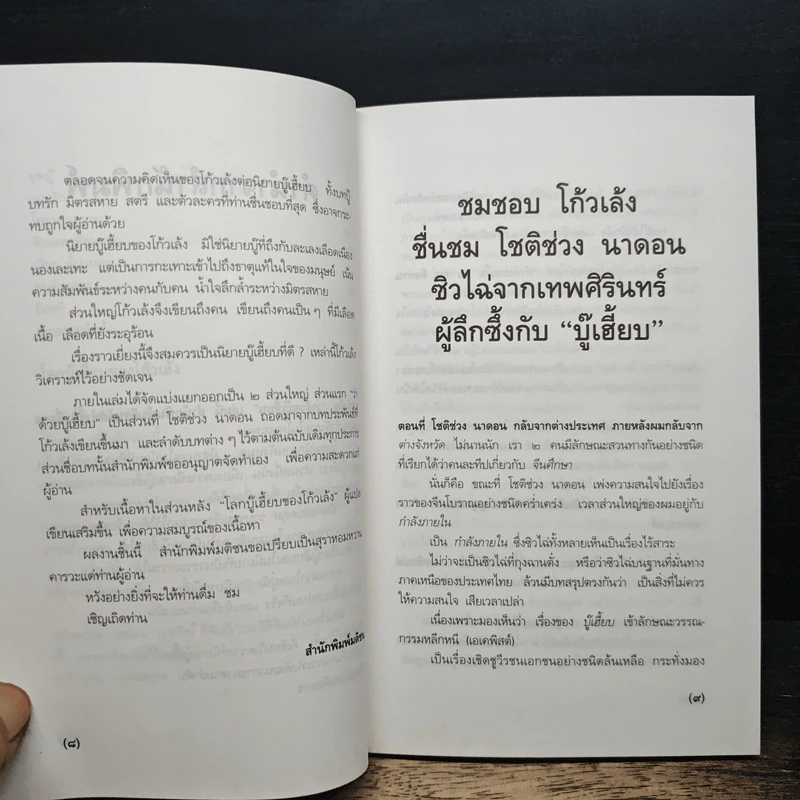 ตลอดจนความคิดเห็นของโก้วเล้งต่อนิยายบู๊เฮี้ยบ ทั้งบทบู๊
บทรัก มิตรสหาย สตรี และตัวละครที่ท่านชื่นชอบที่สุด ซึ่งอาจกระ-
ทบถูกใจผู้อ่านด้วย
นิยายบู๊เฮี้ยบของโก้วเล้ง มิใช่นิยายบู๊ที่ถึงกับละเลงเลือดเนื่อง
นองเละเทะ แต่เป็นการกะเทาะเข้าไปถึงธาตุแท้ในใจของมนุษย์ เน้น
ความสัมพันธ์ระหว่างคนกับคน น้ำใจลึกล้ำระหว่างมิตรสหาย
ส่วนใหญ่โก้วเล้งจึงเขียนถึงคน เขียนถึงคนเป็น ๆ ที่มีเลือด
เนื้อ เลือดที่ยังระอุร้อน
เรื่องราวเยี่ยงนี้จึงสมควรเป็นนิยายบู๊เฮี้ยบที่ดี ? เหล่านี้โก้วเล้ง
วิเคราะห์ไว้อย่างชัดเจน
ภายในเล่มได้จัดแบ่งแยกออกเป็น ๒ ส่วนใหญ่ ส่วนแรก "ว่า
ด้วยบู๊เฮี้ยบ" เป็นส่วนที่ โชติช่วง นาดอน ถอดมาจากบทประพันธ์ที่
โก้วเล้งเขียนขึ้นมา และลำดับบทต่าง ๆ ไว้ตามต้นฉบับเดิมทุกประการ
ส่วนชื่อบทนั้นสำนักพิมพ์ขออนุญาตจัดทำเอง เพื่อความสะดวกแก่
ผู้อ่าน
สำหรับเนื้อหาในส่วนหลัง "โลกบู๊เฮี้ยบของโก้วเล้ง" ผู้แปล
เขียนเสริมขึ้น เพื่อความสมบูรณ์ของเนื้อหา
ผลงานชิ้นนี้ สำนักพิมพ์มติชนขอเปรียบเป็นสุราหอมหวาน
คารวะแด่ท่านผู้อ่าน
หวังอย่างยิ่งที่จะให้ท่านดื่ม ชม
เชิญเถิดท่าน
สำนักพิมพ์มติชน
(๘)
ชมชอบ โก้วเล้ง
ชื่นชม โชติช่วง นาดอน
ซิวไฉ่จากเทพศิรินทร์
ผู้ลึกซึ้งกับ "บู๊เฮี้ยบ"
ตอนที่ โชติช่วง นาดอน กลับจากต่างประเทศ ภายหลังผมกลับจาก
ต่างจังหวัด ไม่นานนัก เรา ๒ คนมีลักษณะสวนทางกันอย่างชนิด
ที่เรียกได้ว่าคนละทีปเกี่ยวกับ จีนศึกษา
นั่นก็คือ ขณะที่ โชติช่วง นาดอน เพ่งความสนใจไปยังเรื่อง
ราวของจีนโบราณอย่างชนิดคร่ำเคร่ง เวลาส่วนใหญ่ของผมอยู่กับ
กำลังภายใน
เป็น กำลังภายใน ซึ่งซิวไฉ่ทั้งหลายเห็นเป็นเรื่องไร้สาระ
ไม่ว่าจะเป็นซิวไฉ่ที่กุงฉานตั่ง หรือว่าซิวไฉ่บนฐานที่มั่นทาง
ภาคเหนือของประเทศไทย ล้วนมีบทสรุปตรงกันว่า เป็นสิ่งที่ไม่ควร
ให้ความสนใจ เสียเวลาเปล่า
เนื่องเพราะมองเห็นว่า เรื่องของ บู๊เฮี้ยบ เข้าลักษณะวรรณ-
กรรมหลีกหนี (เอเคพิสต์)
เป็นเรื่องเชิดชูวีรชนเอกชนอย่างชนิดล้นเหลือ กระทั่งมอง
(๙)